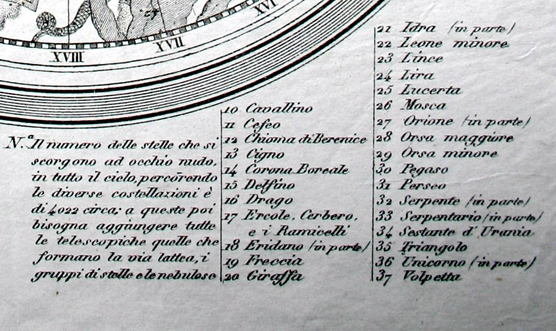 XVI
XVII
XVIII
N.a Il numero delle stelle che si
scorgono ad occhio nudo,
in tutto il cielo, percorendo
le diverse costellazioni è
di 4022 circa; a queste poi
bisogna aggiungere tutte
le telescopiche quelle che
formano la via lattea, i
gruppi di stelle e le nebulose
10 Cavallino
11 Cefeo
12 Chioma di Berenice
13 Cigno
14 Corona Boreale
15 Delfino
16 Drago
17 Ercole, Cerbero,
e i Ramicelli
18 Eridano (in parte)
19 Freccia
20 Giraffa
21 Idra (in parte)
22 Leone minore
23 Lince
24 Lira
25 Lucerta
26 Mosca
27 Orione (in parte)
28 Orsa maggiore
29 Orsa minore
30 Pegaso
31 Perseo
32 Serpente (in parte)
33 Serpentario (in parte)
34 Sestante d'Urania
35 Triangolo
36 Unicorno (in parte)
37 Volpetta